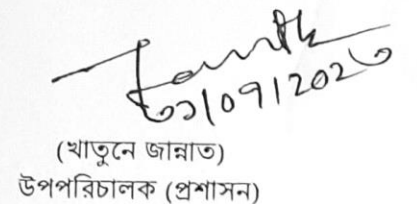 ৩১/০৭/২০২৩
(খাতুনে জান্নাত)
উপপরিচালক (প্রশাসন)